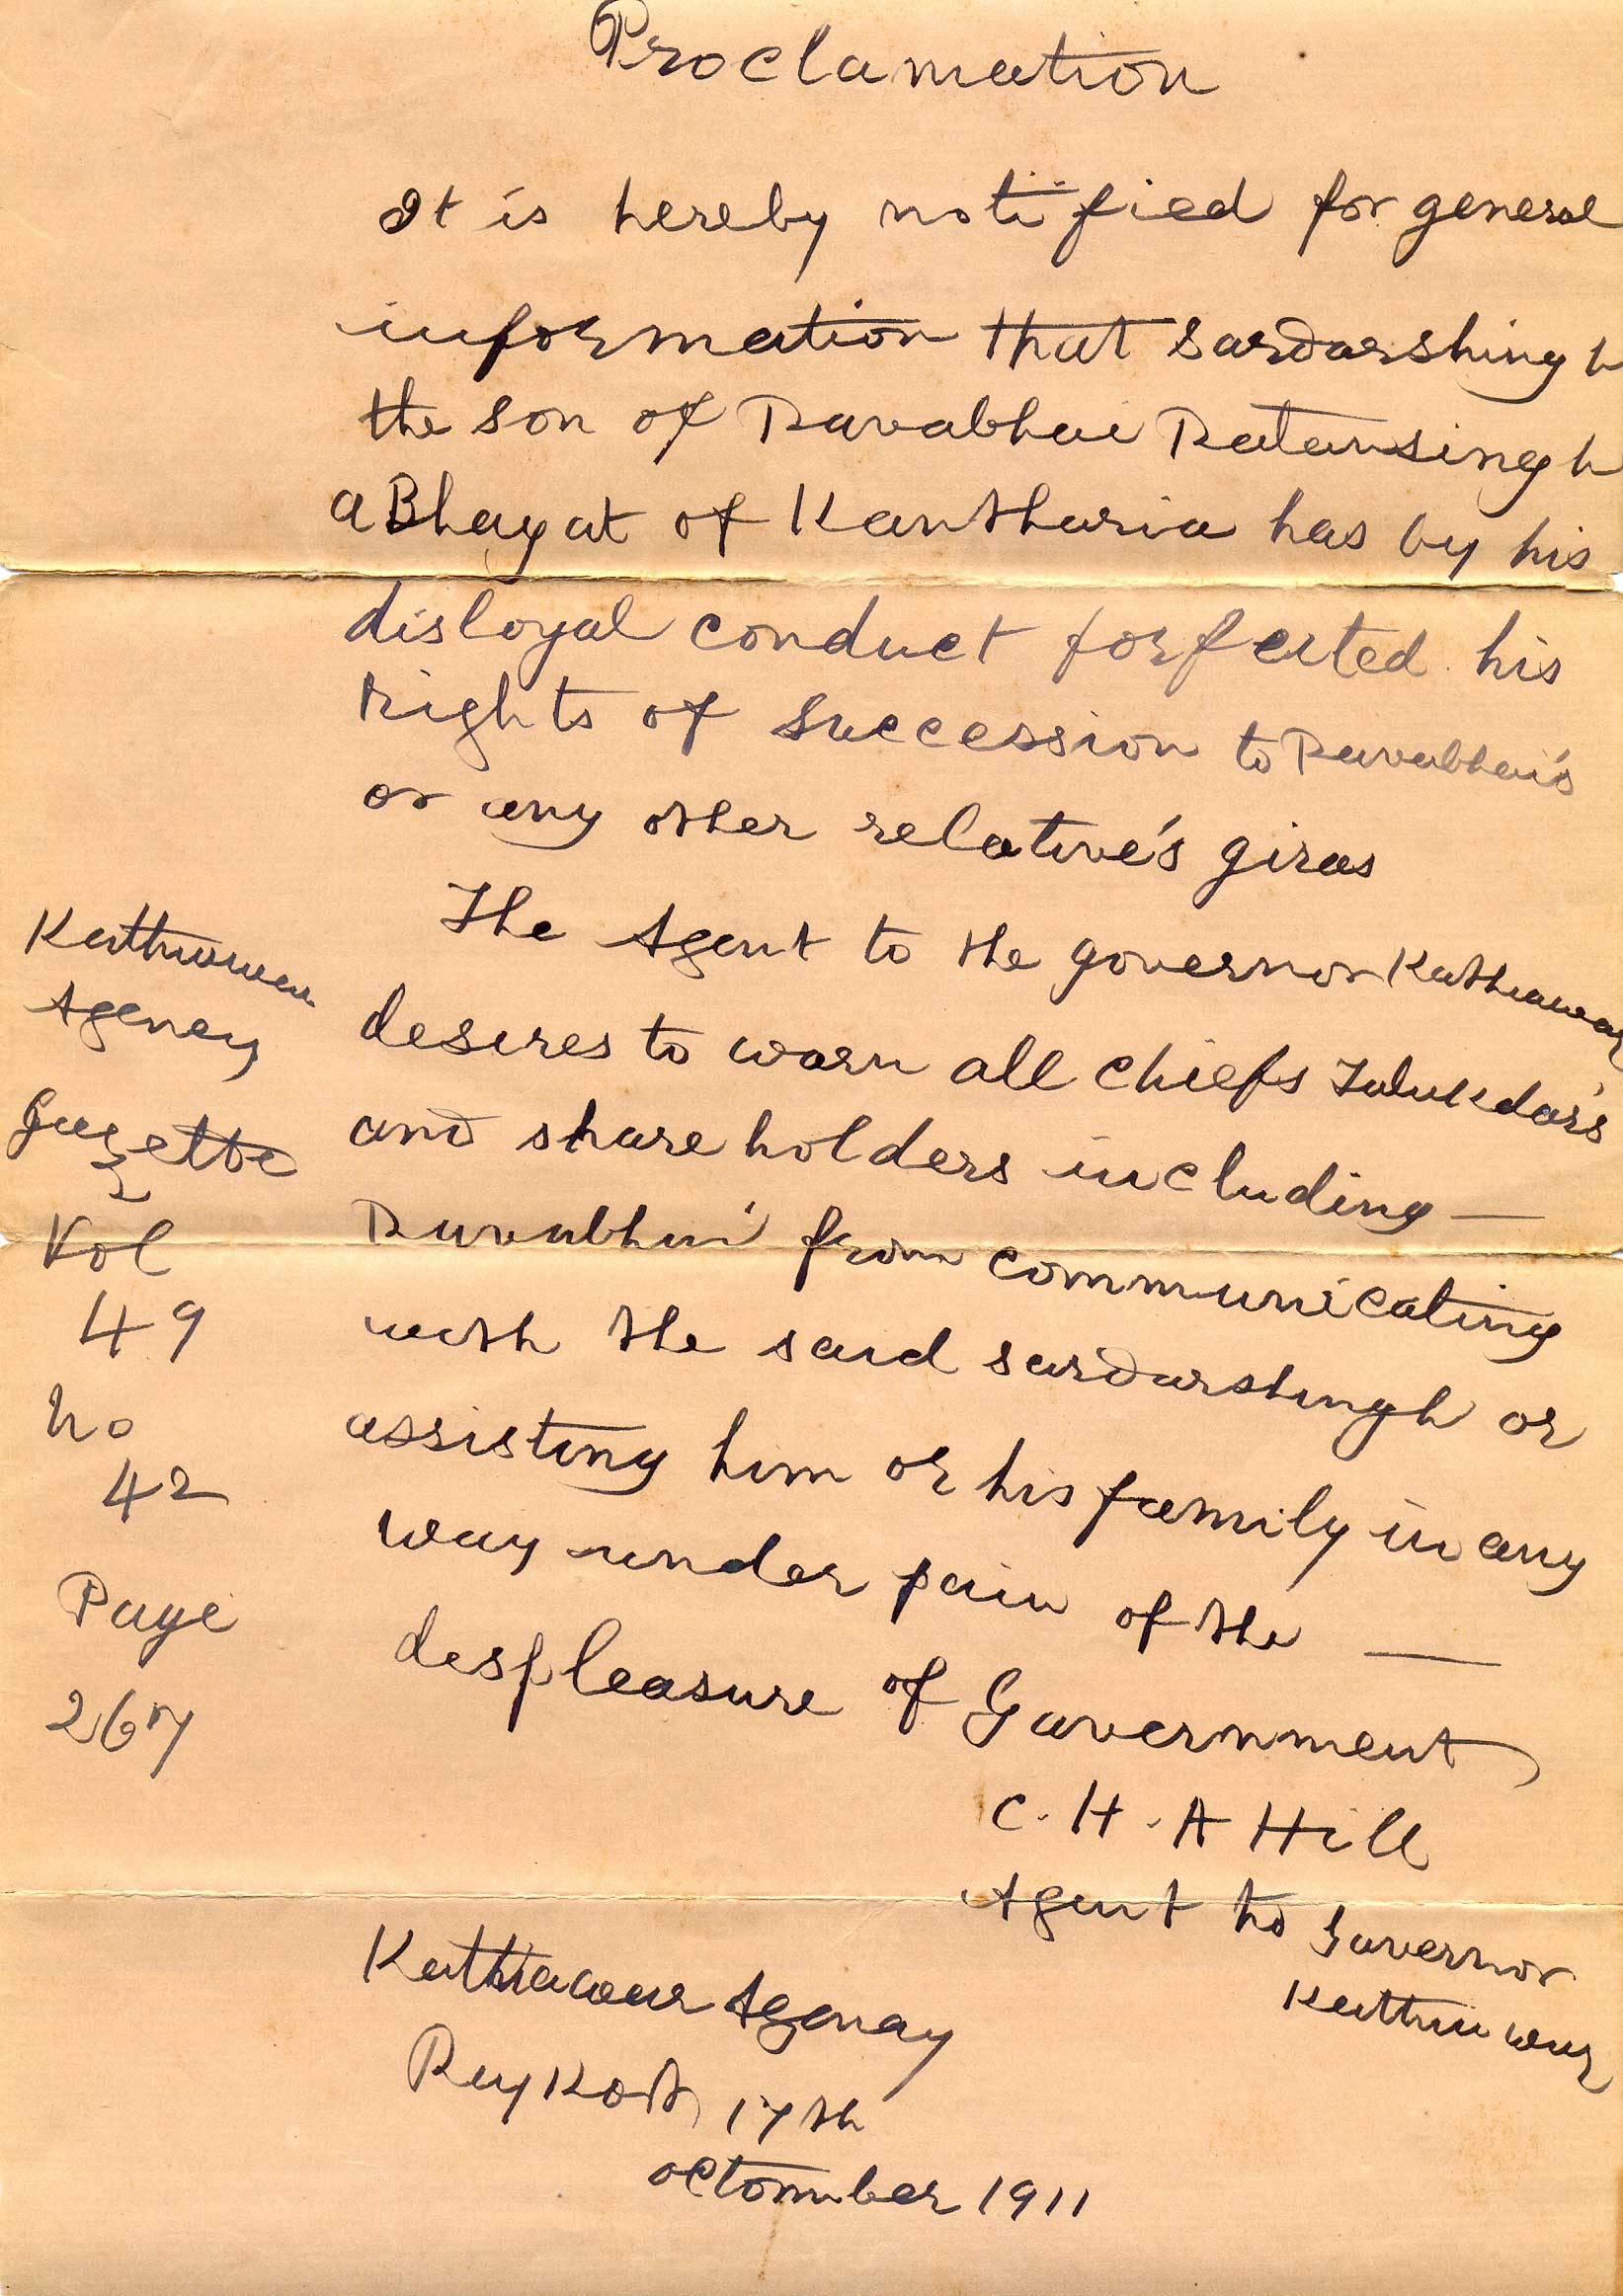 Proclamation
It is hereby notified for general
information that Sardarshingh
the son of Ravabhai Ratansingh
a Bhayat of Kantharia has by his
disloyal conduct forfeited his
rights of succession to Ravabhai's
or any other relative's giras
The Agent to the governor Kathiawar
desires to warn all chiefs Talukdar's
and share holders including —
Ravabhai from communicating
with the said sardarshingh or
assisting him or his family in any
way under pain of the —
despleasure of Government
C. H. A Hill
Agent to Governor
Kathiawar
Kathiawar Agency
Rajkot 17th
octomber 1911
Kathiawar
Agency
Gazette
Vol
49
No
42
Page
267